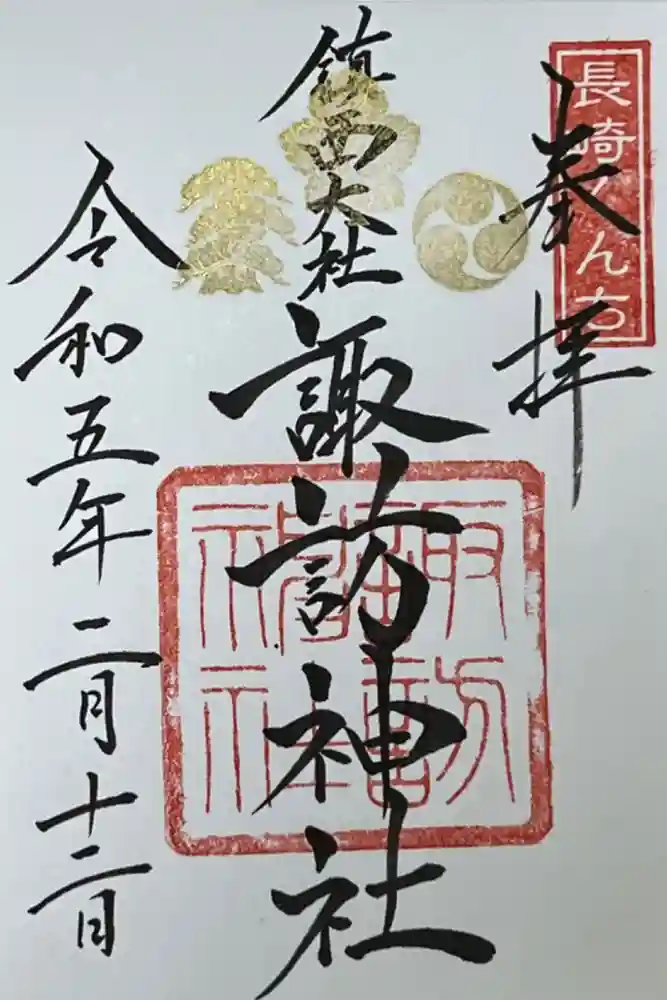 長崎くんち
奉拝
鎮西大社
諏訪神社
諏訪神社
令和五年二月十二日